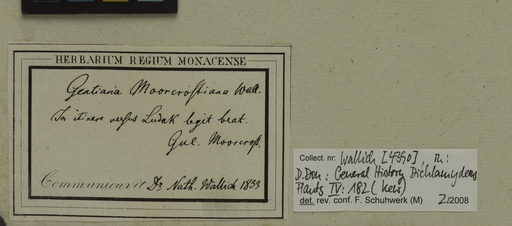 HERBARIUM REGIUM MONACENSE
Gentiana Moorcroftiana Wall.
In itinere versus Ladak legit beat.
Gul. Moorcroft.
Communicavit Dr. Nath. Wallich 1833
Collect. nr: Wallich [4390], in:
D. Don: General History Dichlamydeous
Plants IV: 182 (
det. rev. conf. F. Schuhwerk (M) 2/2008